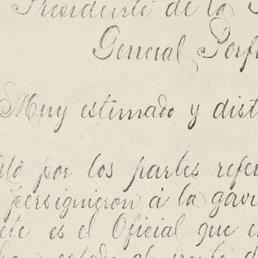 Presidente de la
General Porf
Muy estimado y dist
por los partes refe
persiguieron á la gavi
es el Oficial que